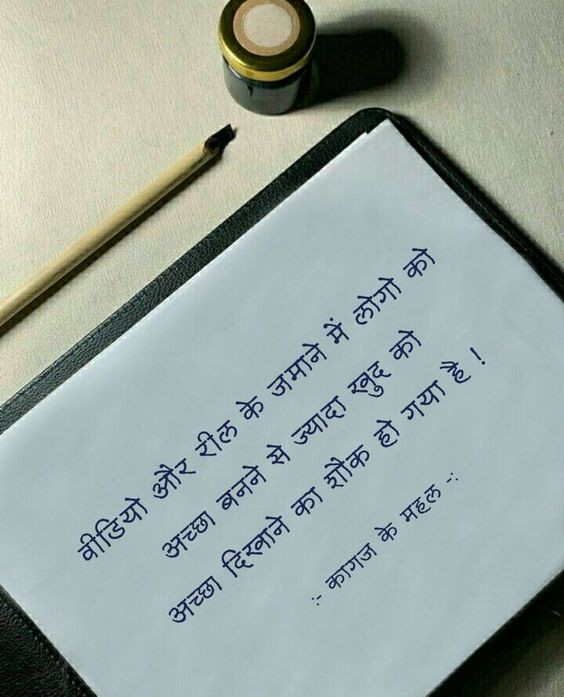 वीडियो और रील के जमाने में लोगो को
अच्छा बनने से ज्यादा खुद को
अच्छा दिखाने का शौक हो गया है !
:- कागज के महल -: